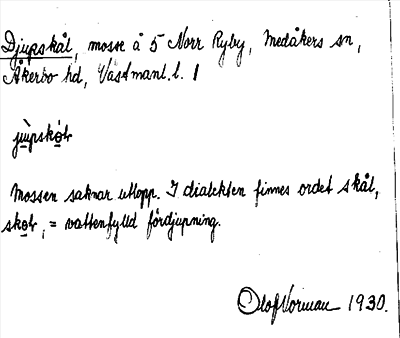 Djupskål, mosse å 5 Norr Ryby, Medåkers sn,
Åkerbo hd, Västmanl. l. 1
jùpskò̱ł
Mossen saknar utlopp. I dialekten finnes ordet skål,
sko̱ł, = vattenfylld fördjupning.
Olof Norman 1930.